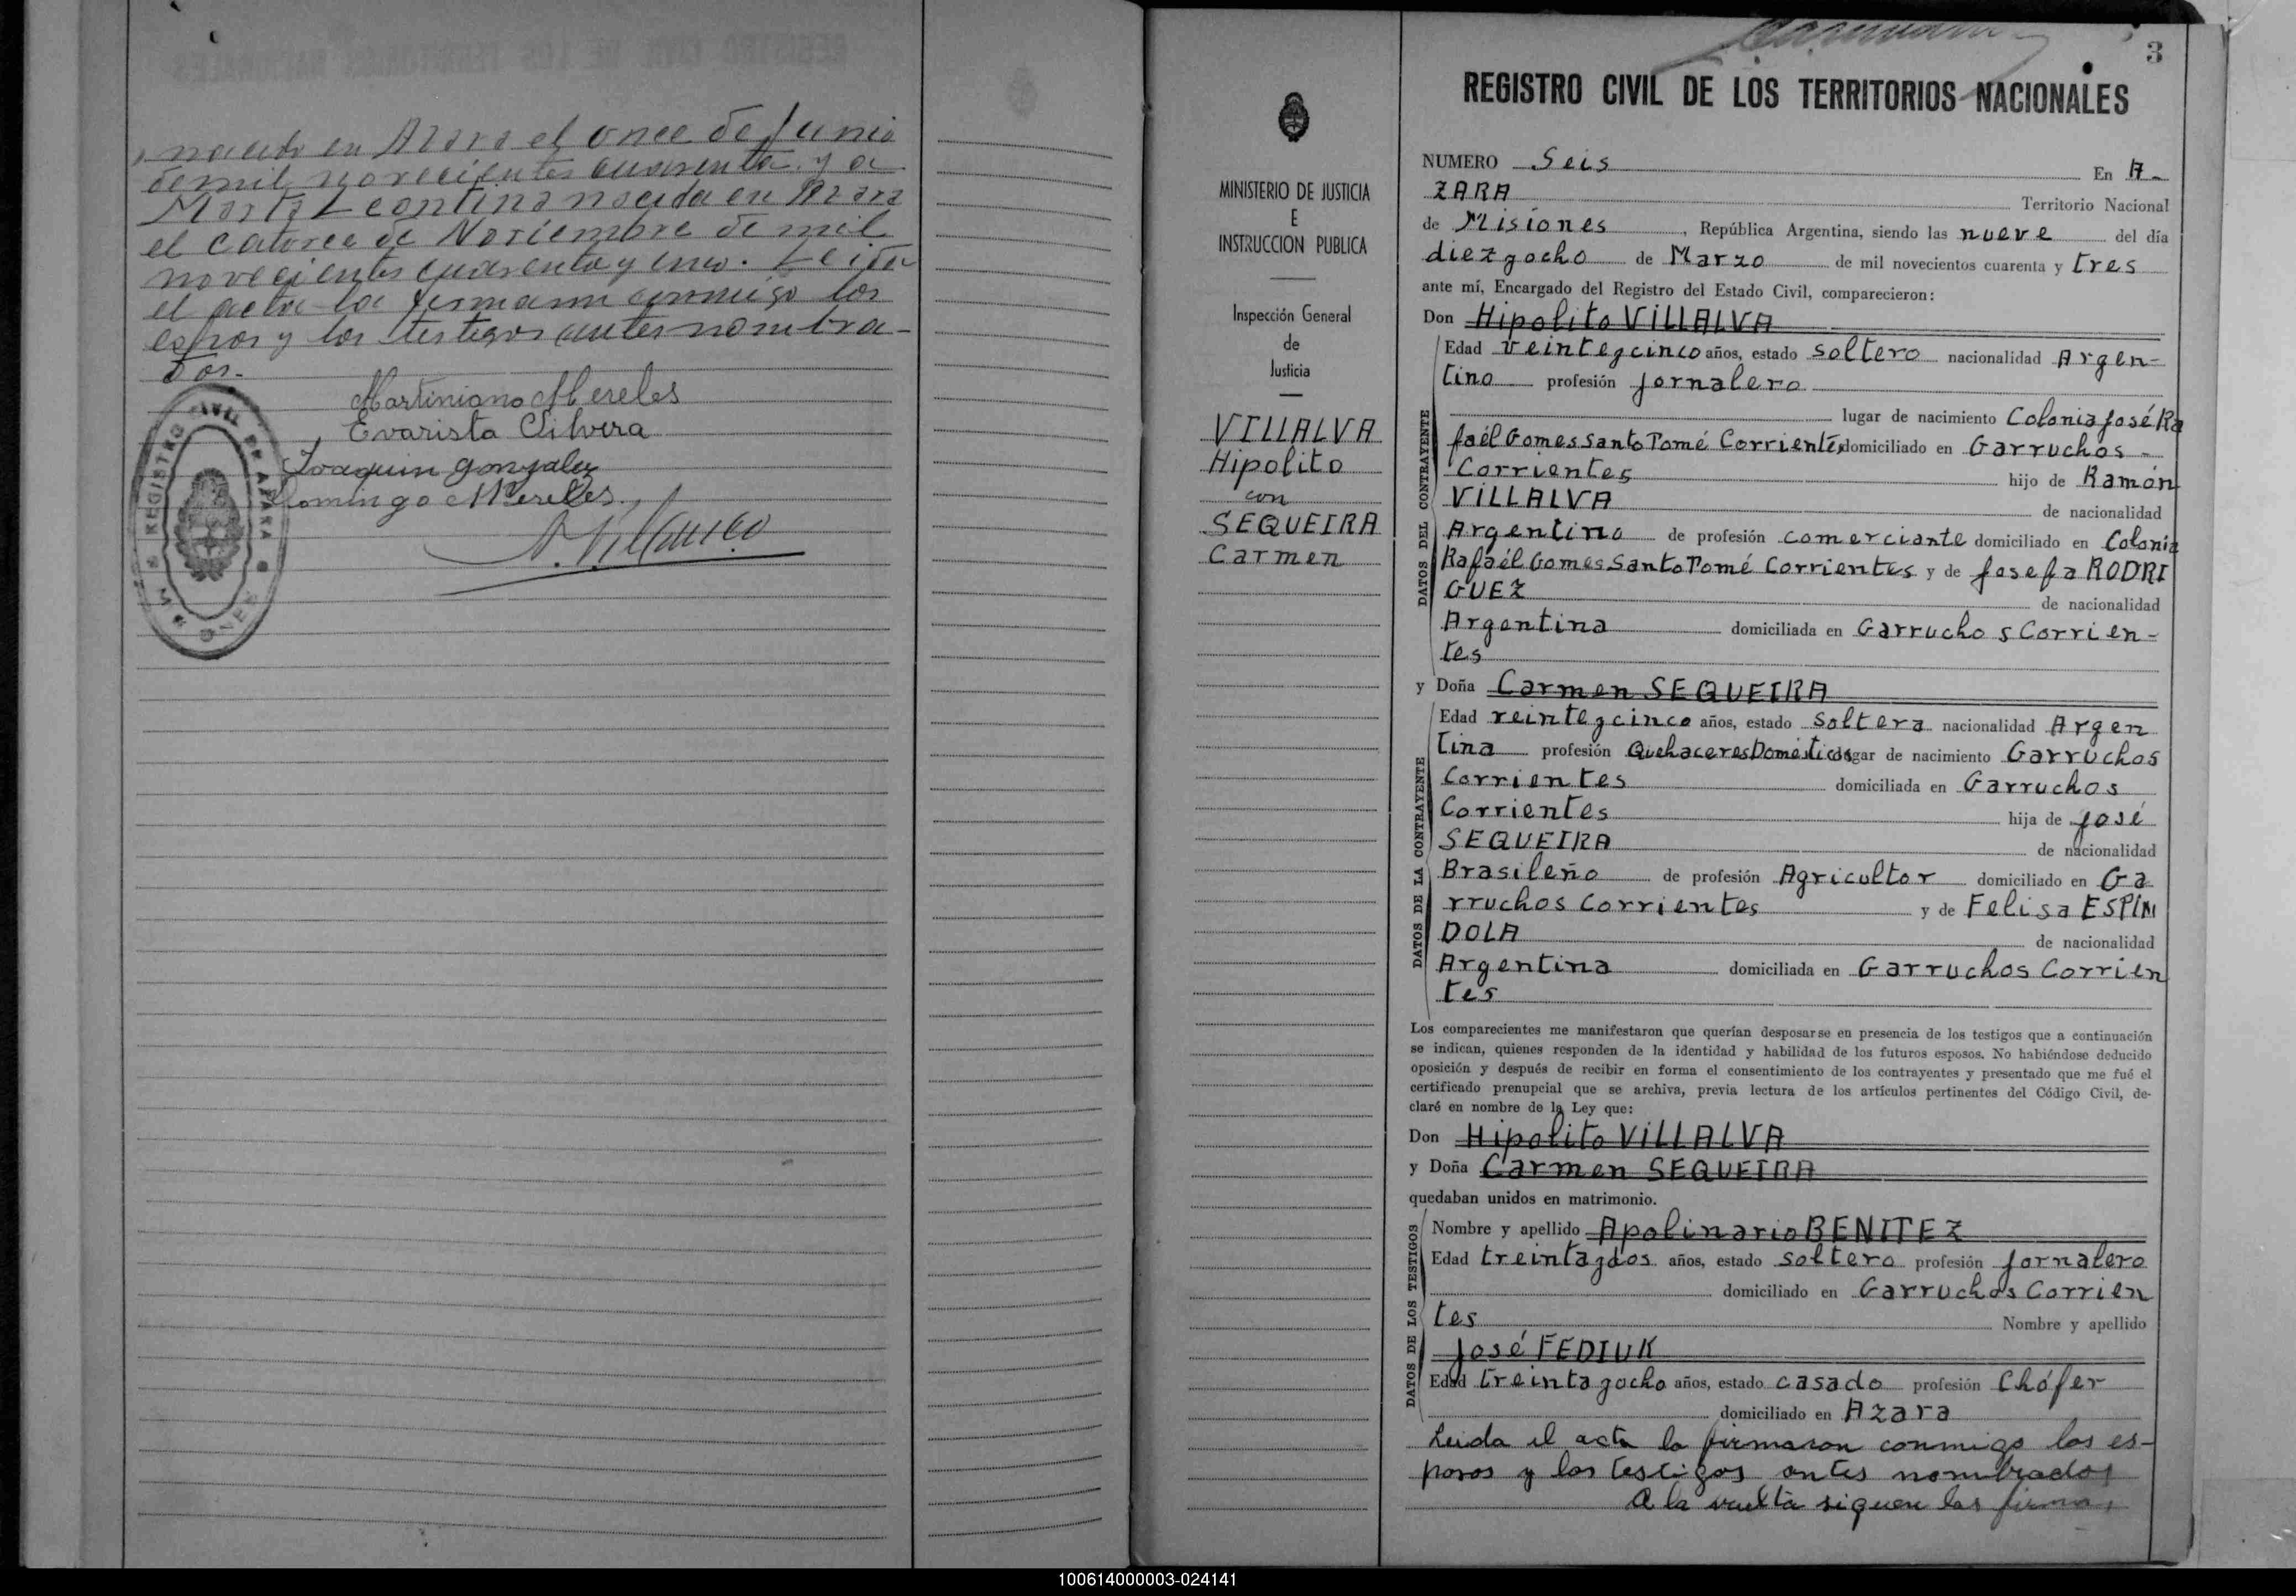 nacido en Azara el once de Junio
de mil novecientos cuarenta y a
Marta Leontina nacida en Azara
el catorce de Noviembre de mil
novecientos cuarenta y uno. Leida
el acta la firmaron conmigo los
esposos y los testigos antes nombra-
dos.
Martiniano Mereles
Evarista Silvera
Joaquin Gonzalez
Domingo Mereles
REGISTRO CIVIL DE AZARA
MISIONES
3
REGISTRO CIVIL DE LOS TERRITORIOS NACIONALES
MINISTERIO DE JUSTICIA
E
INSTRUCCION PUBLICA
Inspección General
de
Justicia
VILLALVA
Hipolito
con
SEQUEIRA
Carmen
NUMERO Seis En A-
ZARA Territorio Nacional
de Misiones, República Argentina, siendo las nueve del día
diezyocho de Marzo de mil novecientos cuarenta y tres
ante mí, Encargado del Registro del Estado Civil, comparecieron:
Don Hipolito VILLALVA
DATOS DEL CONTRAYENTE
Edad veinteycinco años, estado soltero nacionalidad Argen-
tino profesión jornalero
lugar de nacimiento Colonia José Ra
faél Gomes Santo Tomé Corrientes domiciliado en Garruchos -
Corrientes hijo de Ramón
VILLALVA de nacionalidad
Argentino de profesión comerciante domiciliado en Colonia
Rafaél Gomes Santo Tomé Corrientes y de Josefa RODRI
GUEZ de nacionalidad
Argentina domiciliada en Garruchos Corrien-
tes
y Doña Carmen SEQUEIRA
DATOS DE LA CONTRAYENTE
Edad veinteycinco años, estado soltera nacionalidad Argen
tina profesión Quehaceres Domésticos lugar de nacimiento Garruchos
Corrientes domiciliada en Garruchos
Corrientes hija de José
SEQUEIRA de nacionalidad
Brasileño de profesión Agricultor domiciliado en Ga
rruchos Corrientes y de Felisa ESPIN
DOLA de nacionalidad
Argentina domiciliada en Garruchos Corrien
tes
Los comparecientes me manifestaron que querían desposarse en presencia de los testigos que a continuación
se indican, quienes responden de la identidad y habilidad de los futuros esposos. No habiéndose deducido
oposición y después de recibir en forma el consentimiento de los contrayentes y presentado que me fué el
certificado prenupcial que se archiva, previa lectura de los artículos pertinentes del Código Civil, de-
claré en nombre de la Ley que:
Don Hipolito VILLALVA
y Doña Carmen SEQUEIRA
quedaban unidos en matrimonio.
DATOS DE LOS TESTIGOS
Nombre y apellido Apolinario BENITEZ
Edad treintaydos años, estado soltero profesión jornalero
domiciliado en Garruchos Corrien
tes Nombre y apellido
José FEDIUK
Edad treintayocho años, estado casado profesión Chófer
domiciliado en Azara
Leida el acta la firmaron conmigo los es-
posos y los testigos antes nombrados
A la vuelta siguen las firmas
100614000003-024141